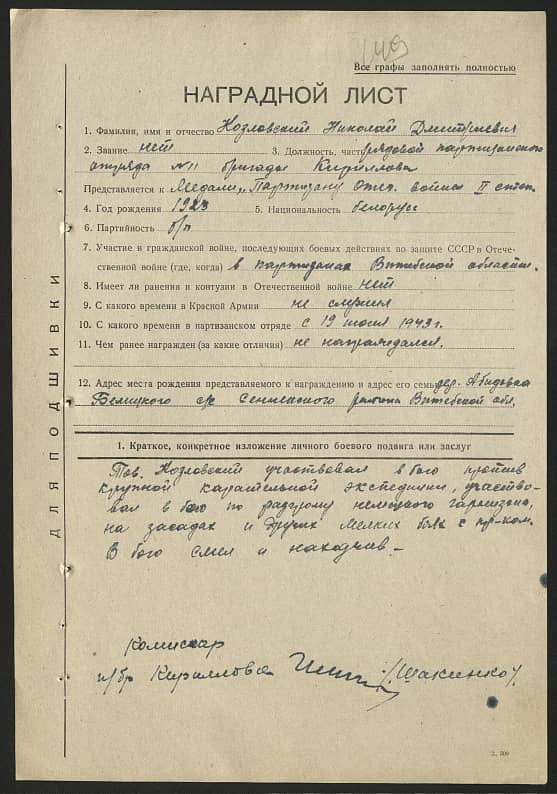 149
Все графы заполнять полностью
НАГРАДНОЙ ЛИСТ
1. Фамилия, имя и отчество Козловский Николай Дмитриевич
2. Звание нет 3. Должность, часть рядовой партизанского
отряда №11 бригады Кириллова
Представляется к Медали „Партизану Отеч. войны II степ.
4. Год рождения 1923 5. Национальность белорус
6. Партийность б/п
7. Участие и гражданской войне, последующих боевых действиях по защите СССР и Отече-
ственной войне (где, когда) в партизанах Витебской области.
8. Имеет ли ранения и контузии в Отечественной войне нет
9. С какого времени в Красной Армии не служил
10. С какого времени в партизанском отряде с 19 июля 1943 г.
11. Чем ранее награжден (за какие отличия) не награждался.
12. Адрес места рождения представляемого к награждению и адрес его семьи дер. Абидовка
с/с Сенненского района Витебской обл.
1. Краткое, конкретное изложение личного боевого подвига или заслуг
Тов. Козловский участвовал в бою против
крупной карательной экспедиции, участво-
вал в бою по разгрому немецкого гарнизона,
на засадах и других мелких боях с пр-ком.
В бою смел и находчив –
Комиссар
п/бр Кириллова /Шакинко/.
ДЛЯ ПОДШИВКИ